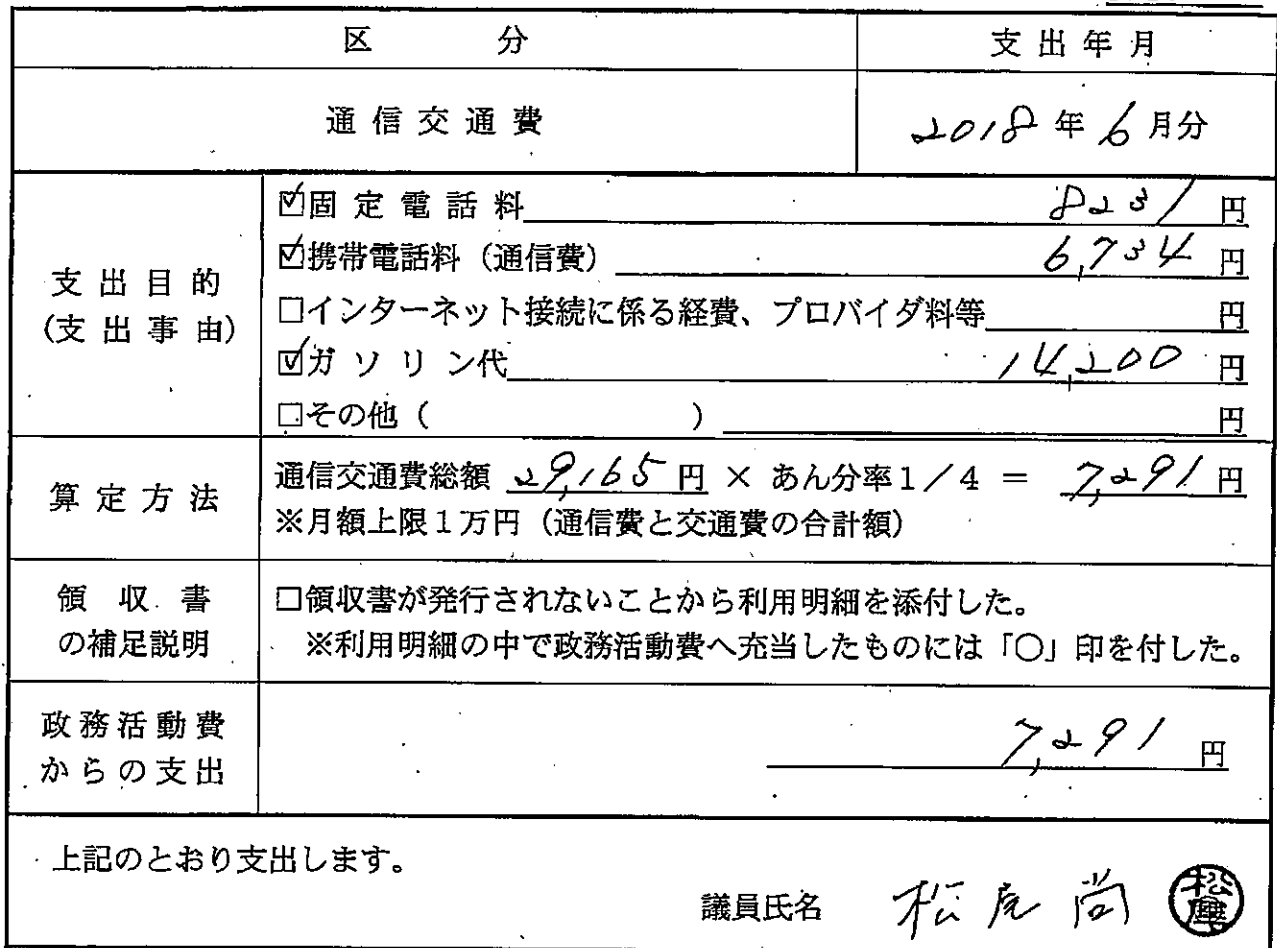 区　分　支出年月
通信交通費　2018年6月分
支出目的
(支出事由)
☑固定電話料 8231 円
☑携帯電話料（通信費） 6,734 円
□インターネット接続に係る経費、プロバイダ料等 円
☑ガソリン代 14,200 円
□その他（　　　） 円
算定方法
通信交通費総額 29,165円 × あん分率1／4 = 7,291円
※月額上限1万円（通信費と交通費の合計額）
領収書
の補足説明
□領収書が発行されないことから利用明細を添付した。
※利用明細の中で政務活動費へ充当したものには「○」印を付した。
政務活動費
からの支出
7,291 円
上記のとおり支出します。
議員氏名 松尾 尚